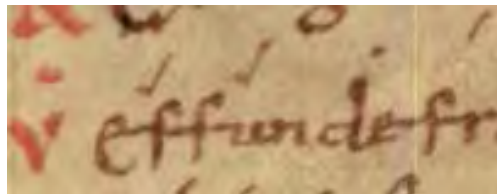 v Effunde fr